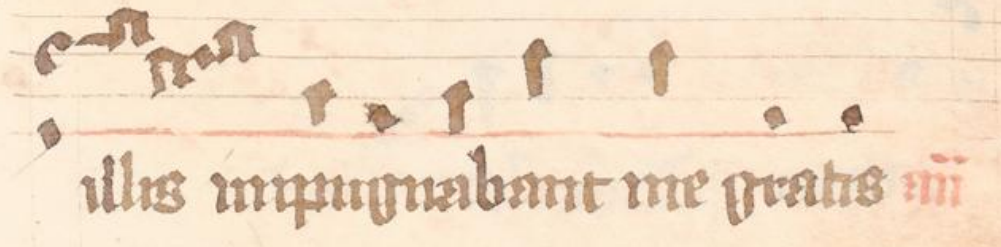 illis inpugnabant me gratis